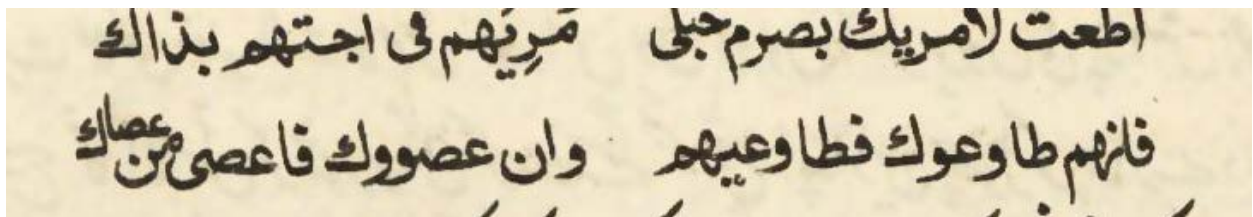 اطعت لامريك بصرم حبلى مريهم فى احبتهم بذاك
فانهم طاوعوك فطاوعيهم وان عصووك فاعصى من عصاك